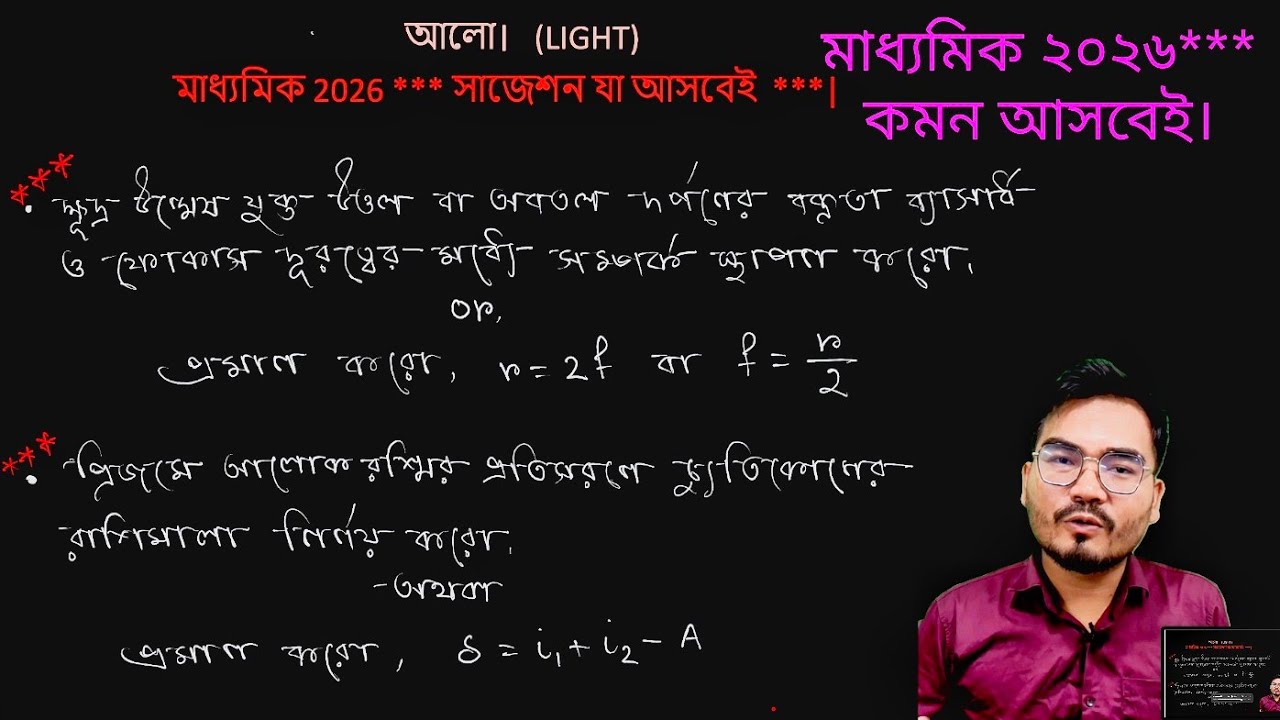 আলো। (LIGHT)
মাধ্যমিক 2026 *** সাজেশন যা আসবেই ***|
মাধ্যমিক ২০২৬***
কমন আসবেই।
*** ক্ষুদ্র উন্মেষ যুক্ত উত্তল বা অবতল দর্পণের বক্রতা ব্যাসার্ধ
ও ফোকাস দূরত্বের মধ্যে সম্পর্ক স্থাপন করো।
or,
প্রমাণ করো, r = 2f বা f = r/2
*** প্রিজমে আলোক রশ্মির প্রতিসরণে চ্যুতিকোণের
রাশিমালা নির্ণয় করো।
অথবা
প্রমাণ করো, δ = i₁ + i₂ - A